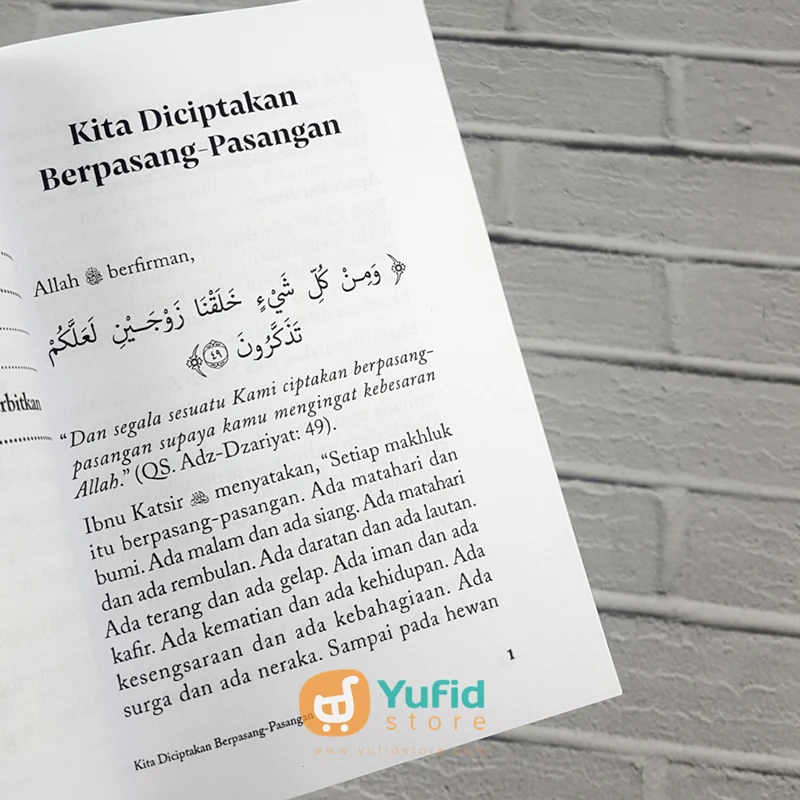 Kita Diciptakan
Berpasang-Pasangan
Allah ﷻ berfirman,
﴿ وَمِنْ كُلِّ شَيْءٍ خَلَقْنَا زَوْجَيْنِ لَعَلَّكُمْ
تَذَكَّرُونَ ٤٩ ﴾
rbitkan
“Dan segala sesuatu Kami ciptakan berpasang-
pasangan supaya kamu mengingat kebesaran
Allah.” (QS. Adz-Dzariyat: 49).
Ibnu Katsir menyatakan, “Setiap makhluk
itu berpasang-pasangan. Ada matahari dan
bumi. Ada malam dan ada siang. Ada matahari
dan ada rembulan. Ada daratan dan ada lautan.
Ada terang dan ada gelap. Ada iman dan ada
kafir. Ada kematian dan ada kehidupan. Ada
kesengsaraan dan ada kebahagiaan. Ada
surga dan ada neraka. Sampai pada hewan
1
Kita Diciptakan Berpasang-Pasangan
Yufid
store
www.yufidstore.com